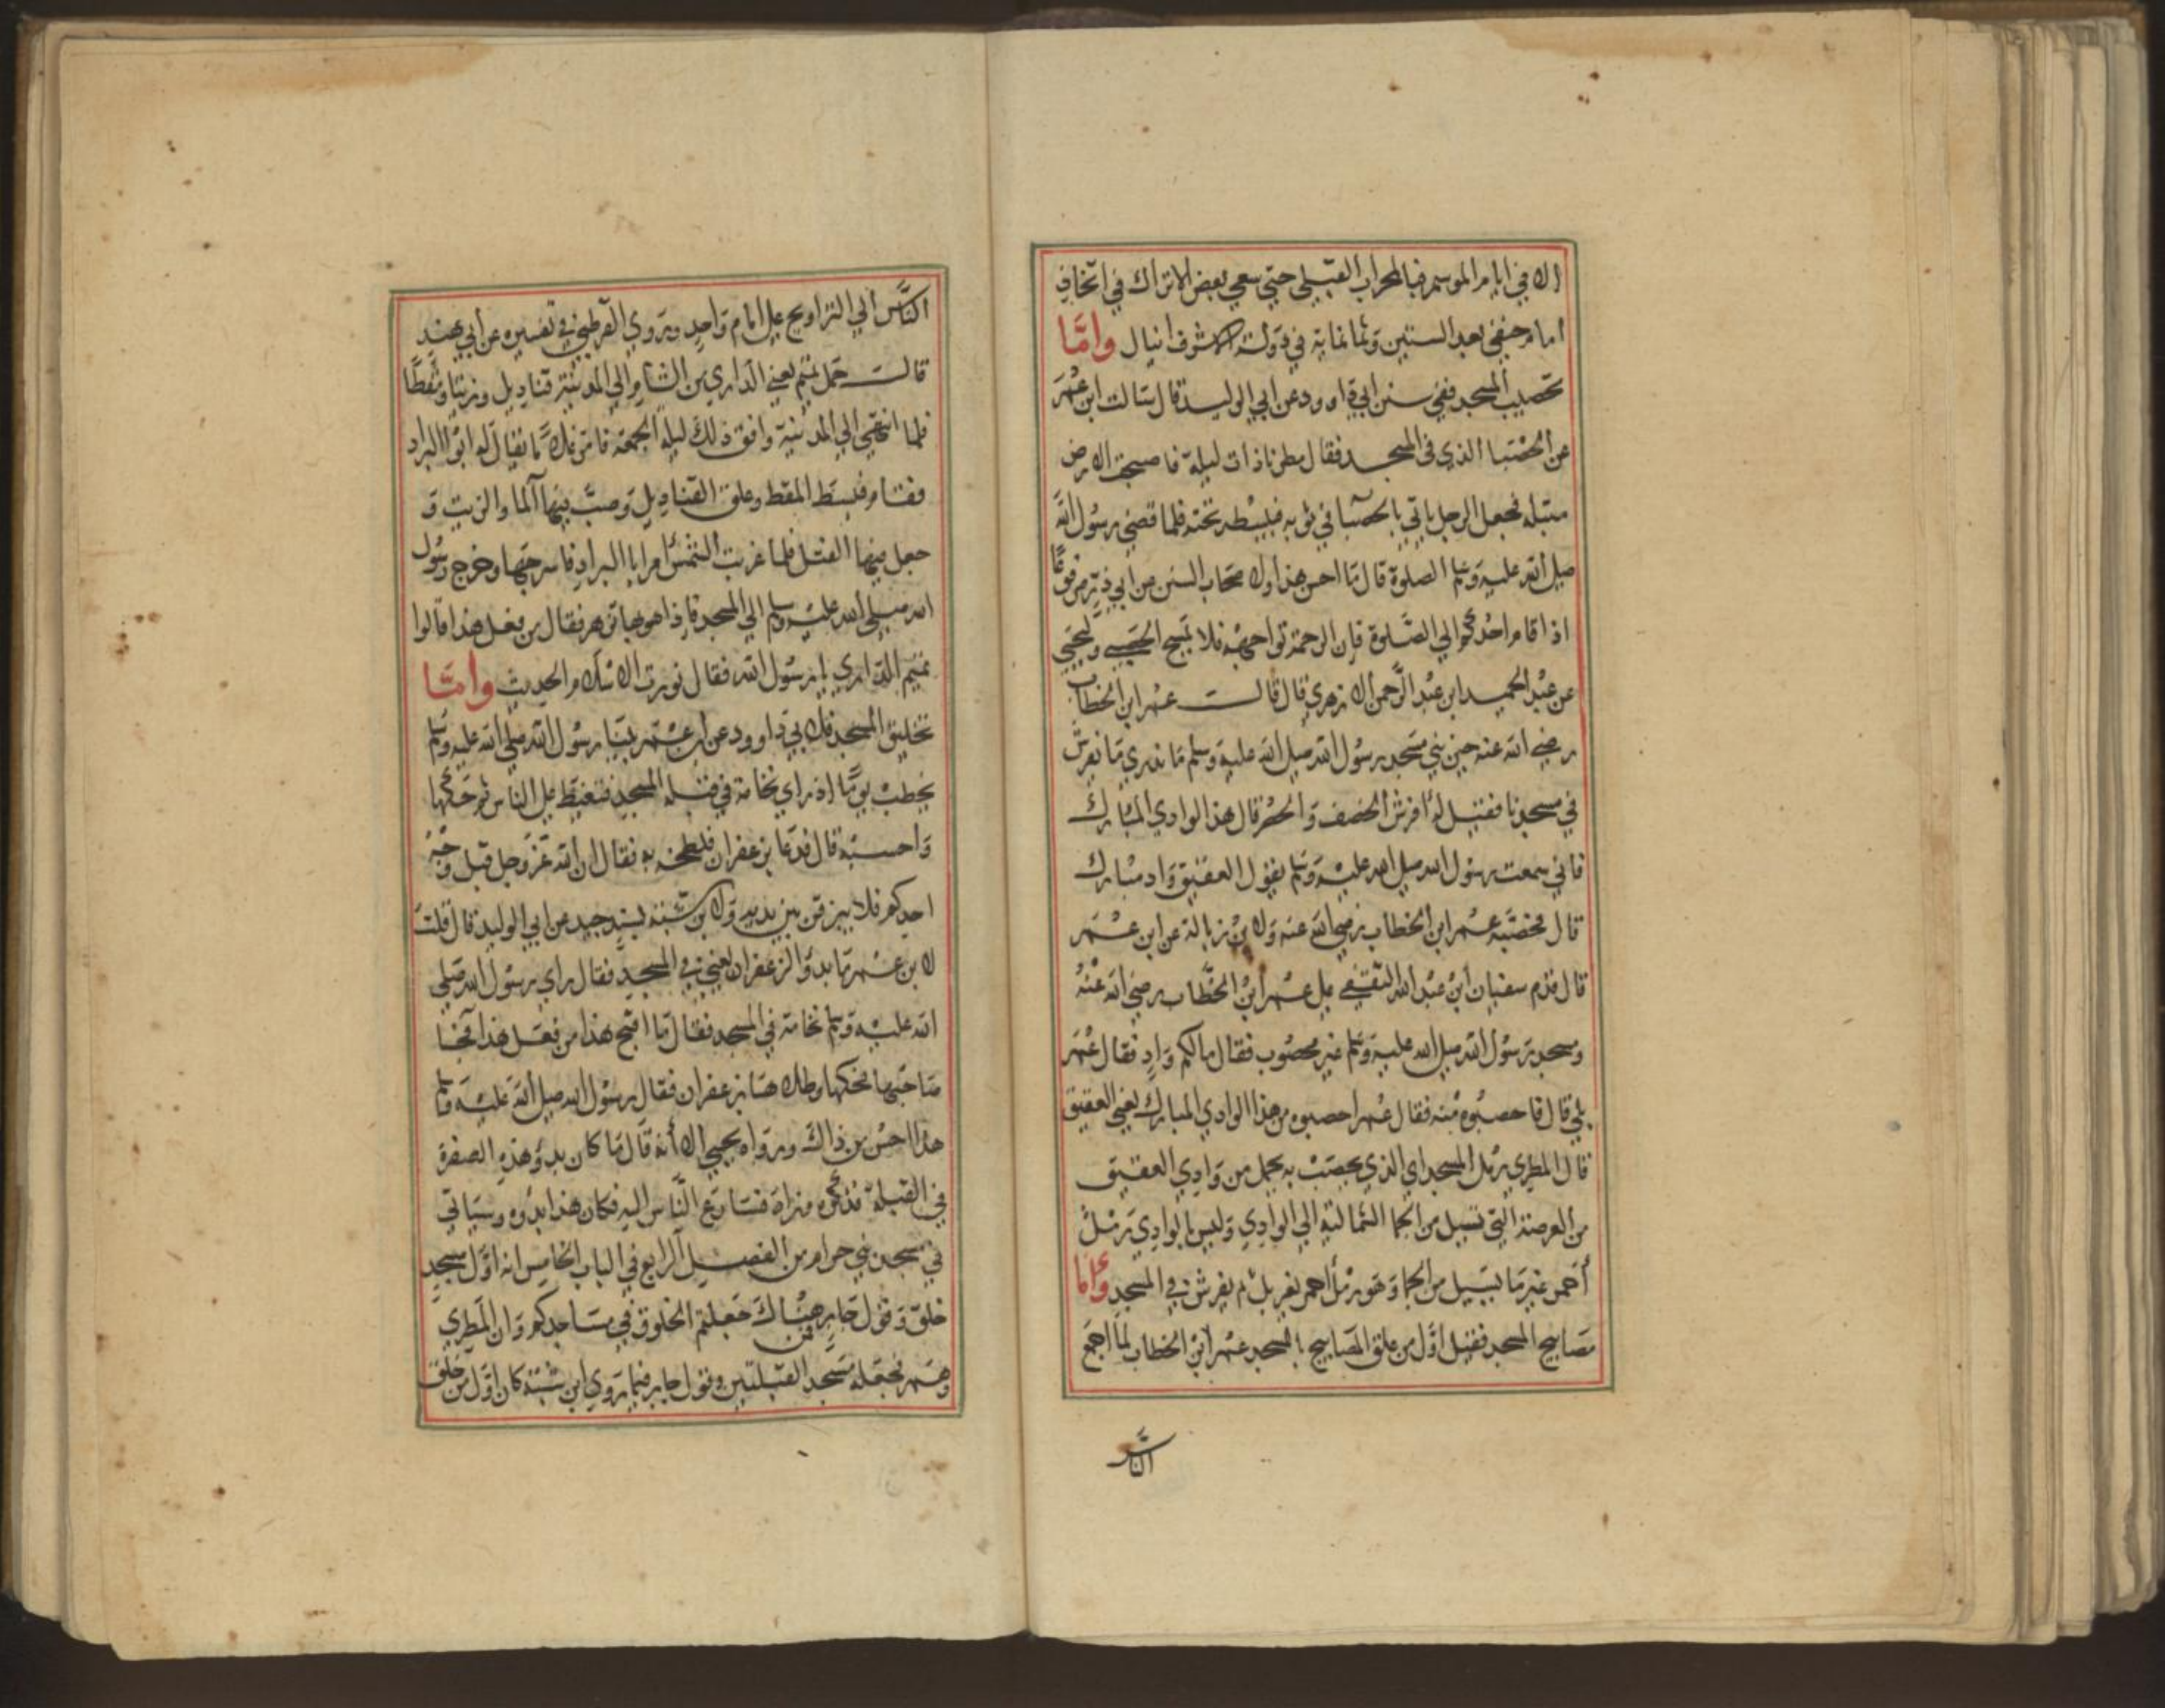 الا في ايام الموسم فبالمحراب القبلي حتي سعي بعض الاتراك في اتخاذ
امام حنفي بعد الستين وثمانماية في دولت الاشرف انيال واما
تحصيب المسجد ففي سنن ابي داوود عن ابي الوليد قال سالت ابن عمر
عن الحصبا الذي في المسجد فقال مطرنا ذات ليلة فاصبحت الارض
مبتله فجعل الرجل ياتي بالحصبا في ثوبه فيبسطه تحته فلما قضي رسول الله
صلي الله عليه وسلم الصلوة قال ما احسن هذا ولاصحاب السنن من ابي ذر مرفوعا
اذا قام احدكم الي الصلوة فان الرحمة تواجهه فلا يمسح الحصي وليحيي
عن عبد الحميد ابن عبد الرحمن الازهري قال قالت عمر ابن الخطاب
رضي الله عنه حين بني مسجد رسول الله صلي الله عليه وسلم ما ندري ما نفرش
في مسجدنا فقيل له افرش الخصف والحصر قال هذا الوادي المبارك
فاني سمعت رسول الله صلي الله عليه وسلم يقول العقيق واد مبارك
قال فحصبه عمر ابن الخطاب رضي الله عنه ولابن زبالة عن ابن عمر
قال قدم سفيان ابن عبد الله الثقفي علي عمر ابن الخطاب رضي الله عنه
ومسجد رسول الله صلي الله عليه وسلم غير محصوب فقال مالكم واد فقال عمر
بلي قال فاحصبوه منه فقال عمر احصبوه من هذا الوادي المبارك يعني العقيق
قال المطري رمل المسجد اي الذي يحصب به يحمل من وادي العقيق
من العرصة التي تسيل من الجما الشمالية الي الوادي وليس بالوادي رمل
أحمر غير ما يسيل من الجما وهو رمل أحمر يغربل ثم يفرش في المسجد وأما
مصابيح المسجد فقيل اول من علق المصابيح بالمسجد عمر ابن الخطاب لما اجمع
الناس
الناس الي التراويح علي امام واحد ويروي القرطبي في تفسيره عن ابي هند
قالت حمل تميم يعني الداري من الشام الي المدينة قناديل وزيتا ومقطا
فلما انتهي الي المدينة وافق ذلك ليلة الجمعة فامر غلاما يقال له ابو البراد
فقام فبسط المقط وعلق القناديل وصب فيها الما والزيت و
جعل فيها الفتل فلما غربت الشمس امر ابا البراد فاسرجها وخرج رسول
الله صلي الله عليه وسلم الي المسجد فاذا هو بها تزهر فقال من فعل هذا قالوا
تميم الداري يا رسول الله فقال نورت الاسلام الحديث واما
تخليق المسجد فلابي داوود عن ابن عمر بينا رسول الله صلي الله عليه وسلم
يخطب يوما اذ راي نخامة في قبلة المسجد فتغيظ علي الناس ثم حكها
واحسبه قال فدعا بزعفران فلطخه به فقال ان الله عز وجل قبل وجه
احدكم فلا يبزقن بين يديه ولابن شبة بسند جيد من ابي الوليد قال قلت
لابن عمر ما بدؤ الزعفران يعني في المسجد فقال راي رسول الله صلي
الله عليه وسلم نخامة في المسجد فقال ما اقبح هذا من فعل هذا فجا
صاحبها فحكها وطلاها بزعفران فقال رسول الله صلي الله عليه وسلم
هذا احسن من ذاك ورواه يحيي الا أنه قال ما كان بدؤ هذه الصفرة
في القبلة فذكره وزاد فتسارع الناس اليه فكان هذا بدؤه وسياتي
في مسجد بني حرام من الفصل الرابع في الباب الخامس انه اول مسجد
خلق وقول جابر فمن هناك جعلتم الخلوق في مساجدكم وان المطري
وهم فجعله مسجد القبلتين وقول جابر فيما يروي ابن شبة كان اول من خلق